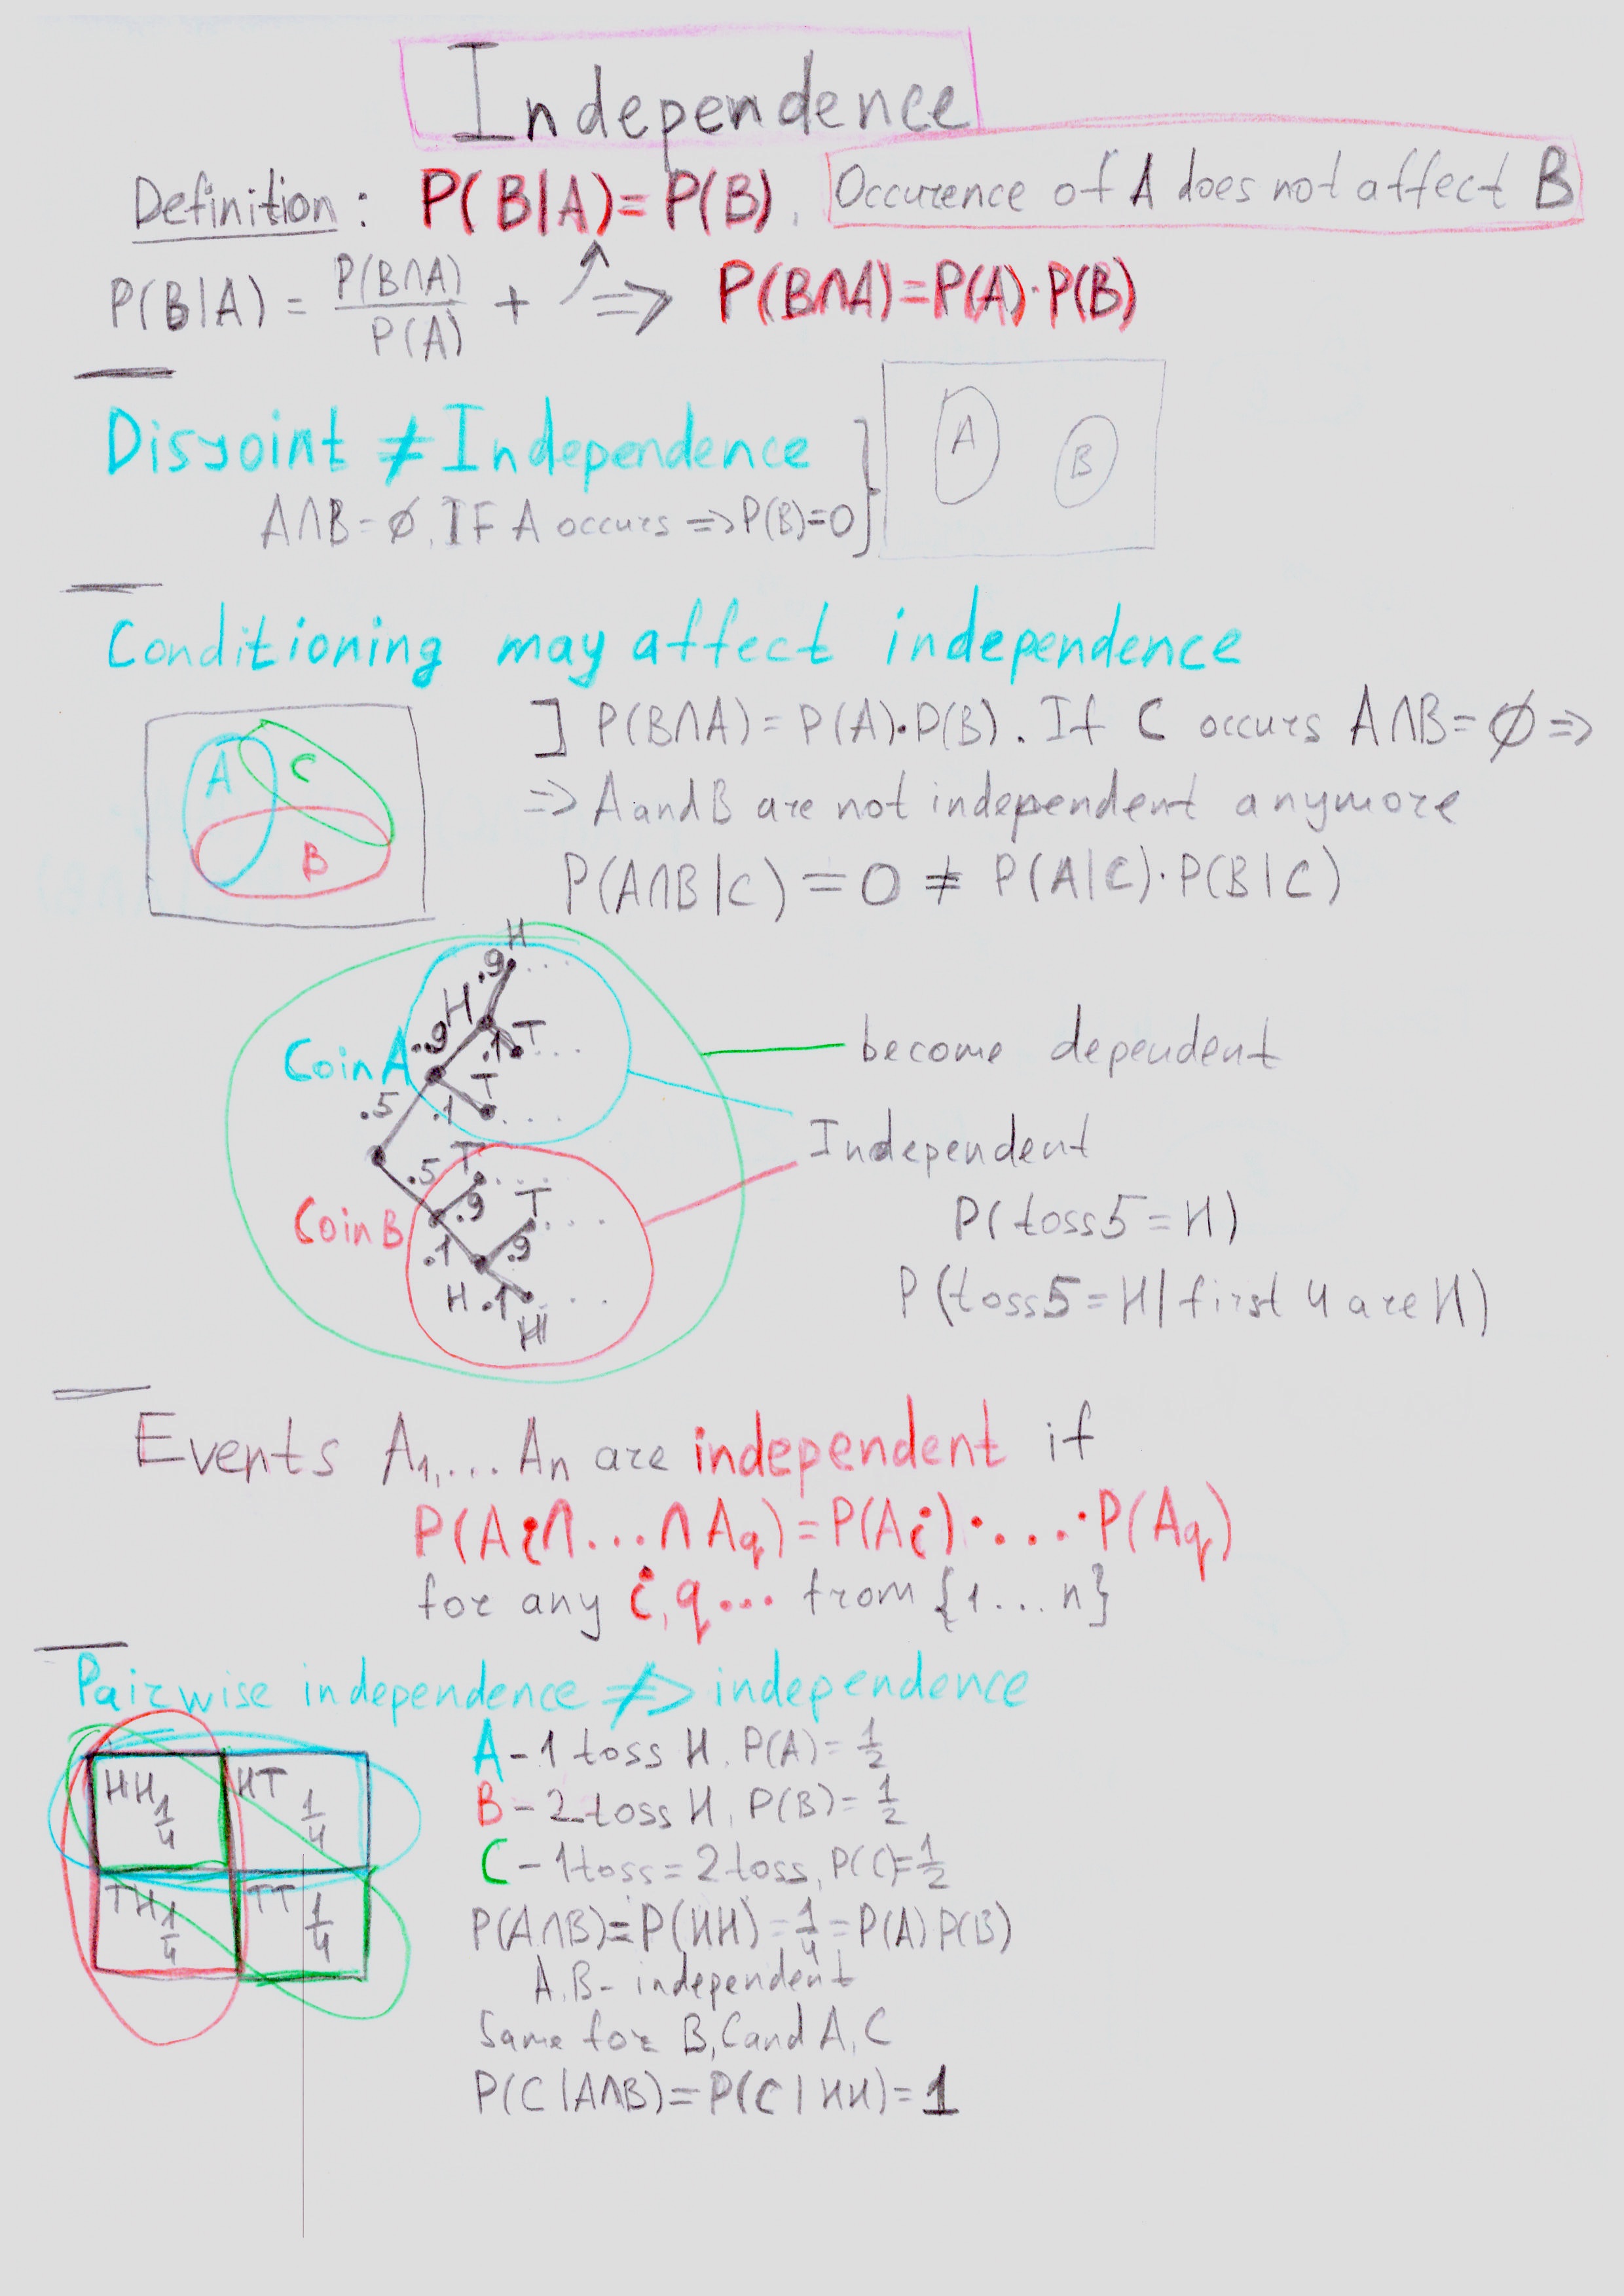 Independence
Definition: P(B|A)=P(B). Occurence of A does not affect B
P(B|A) = P(B∩A)/P(A) + ↗ => P(B∩A)=P(A)·P(B)
Disjoint ≠ Independence
A∩B=∅. IF A occurs =>P(B)=0
A
B
Conditioning may affect independence
A
C
B
] P(B∩A)=P(A)·P(B). If C occurs A∩B=∅ =>
=> A and B are not independent anymore
P(A∩B|C) = 0 ≠ P(A|C)·P(B|C)
H
.9 ...
H
.9 .1 T ...
Coin A
T
.5 .1 ....
.5 T ....
.9 T ...
Coin B
.1 .9
H .1 ...
H
become dependent
Independent
P(toss5=H)
P(toss5=H|first 4 are H)
Events A1,... An are independent if
P(Ai∩...∩Aq)=P(Ai)·....·P(Aq)
for any i,q... from {1...n}
Pairwise independence ≠> independence
HH 1/4
HT 1/4
TH 1/4
TT 1/4
A - 1 toss H. P(A)=1/2
B - 2 toss H, P(B)=1/2
C - 1toss=2toss, P(C)=1/2
P(A∩B)=P(HH)=1/4=P(A)P(B)
A,B- independent
Same for B,C and A,C
P(C|A∩B)=P(C|HH)=1